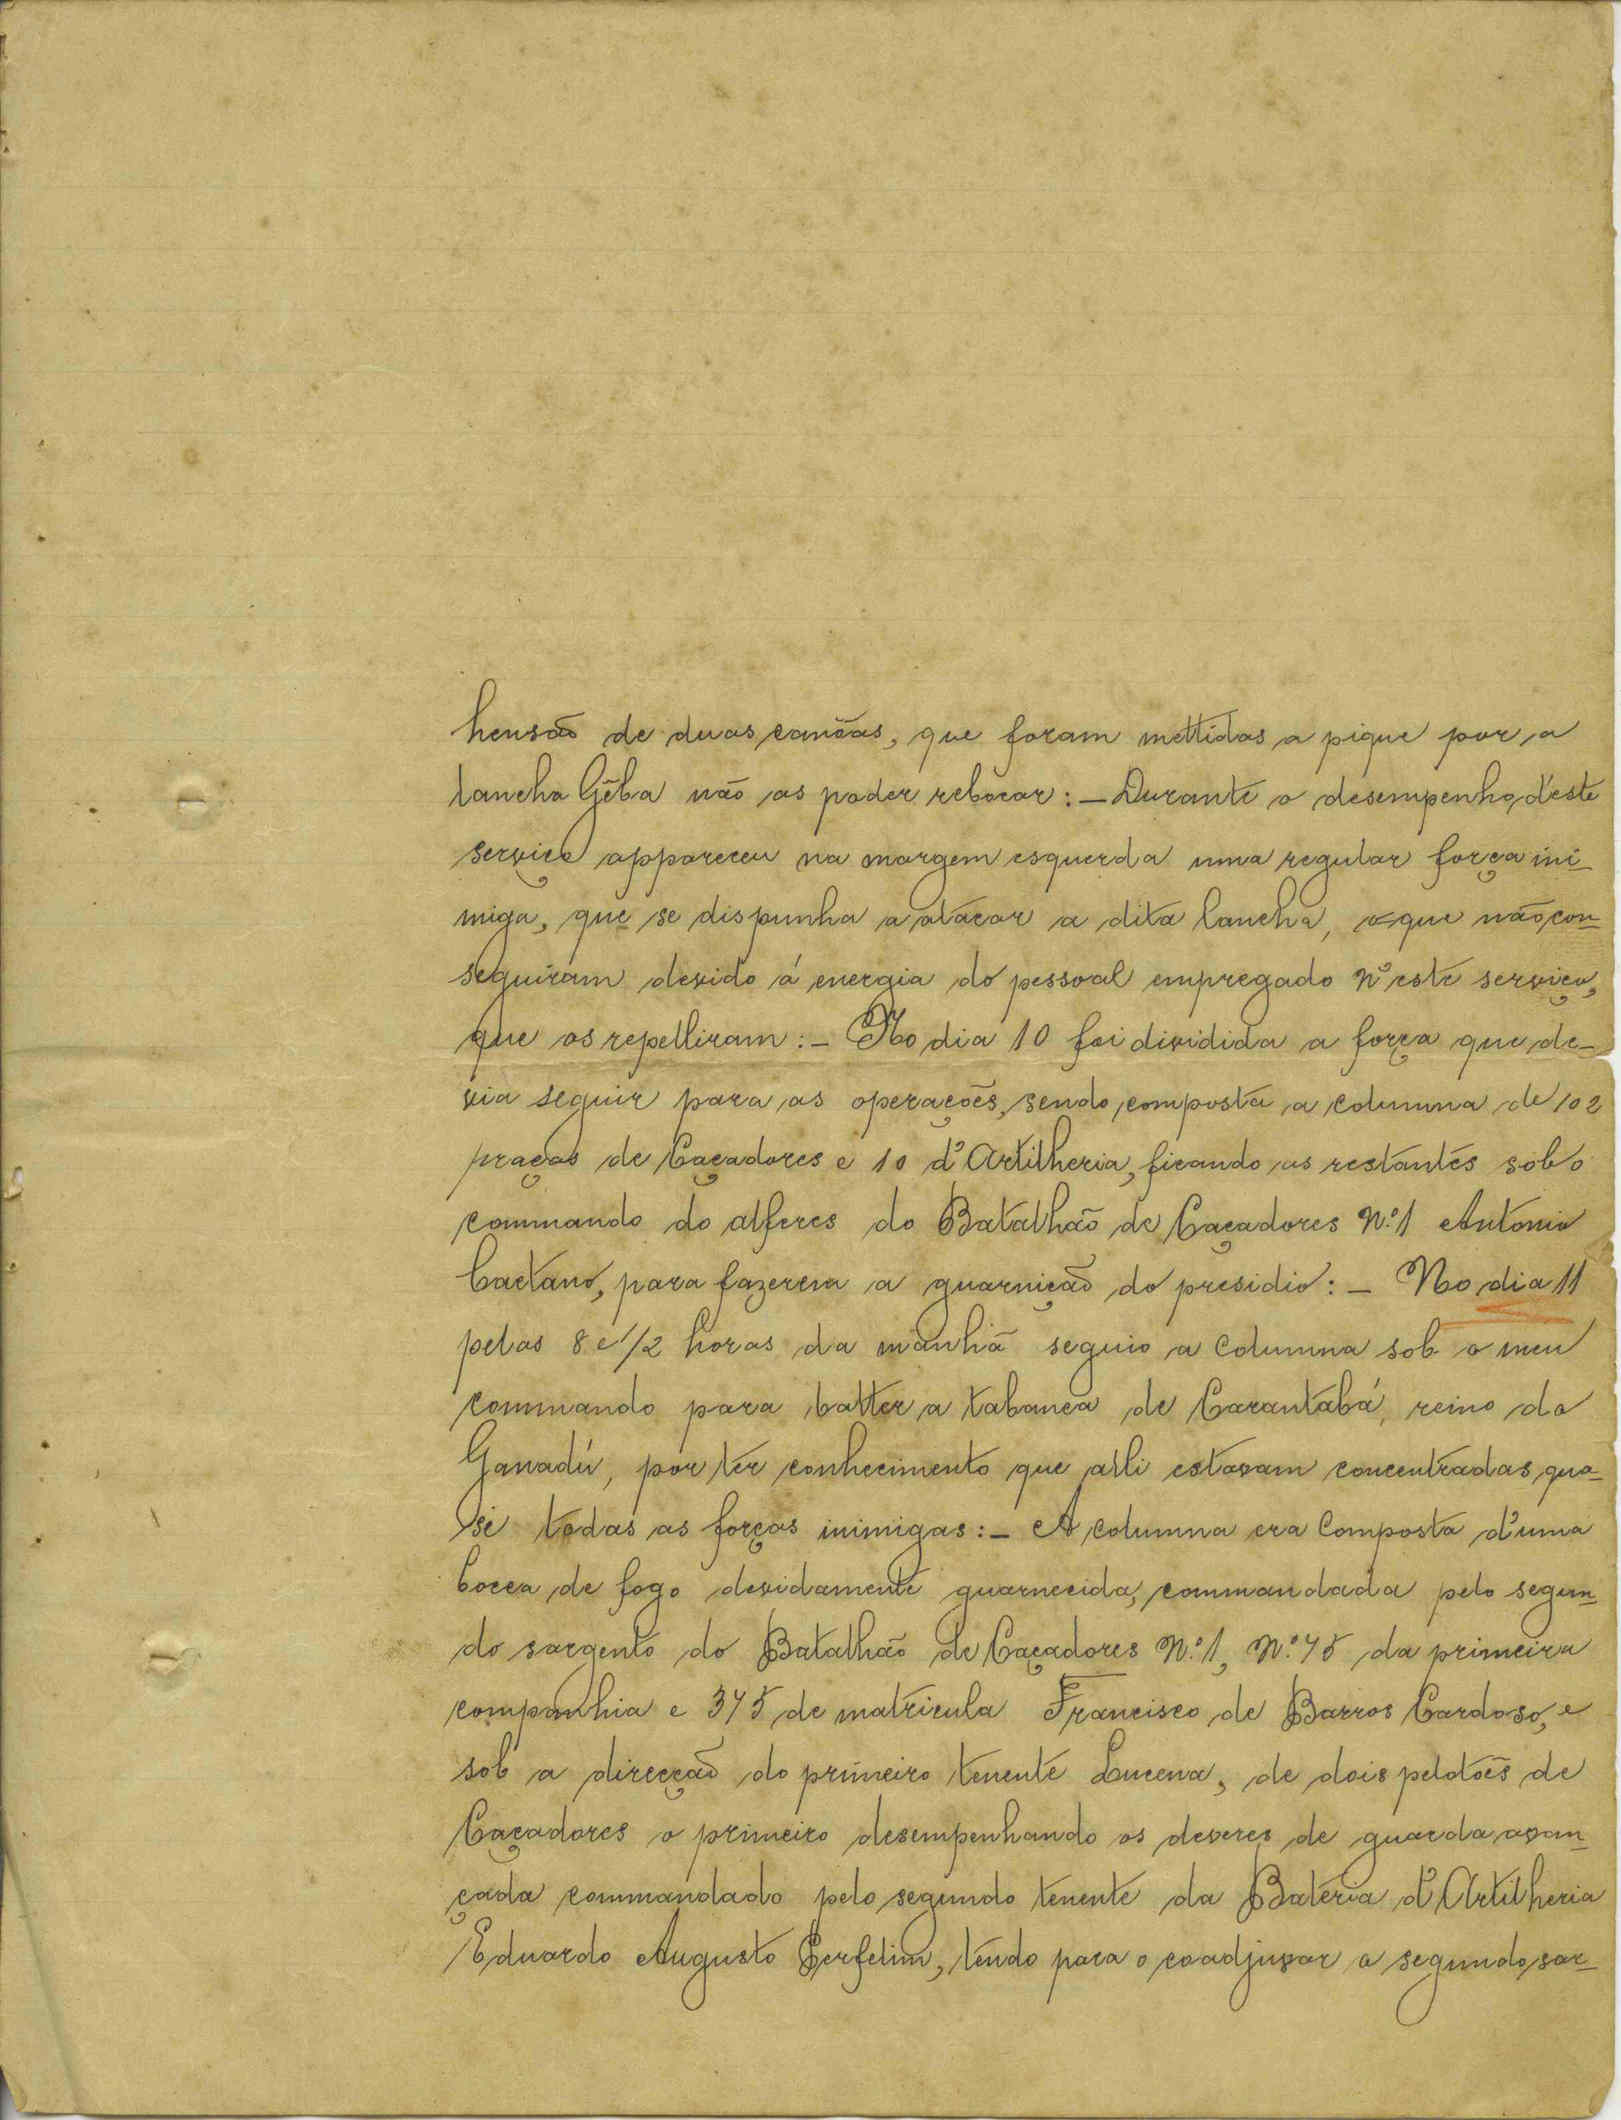 hensão de duas canôas, que foram mettidas a pique por a
lancha Gêba não as poder rebocar: — Durante o desempenho d'este
serviço appareceu na margem esquerda uma regular força ini-
miga, que se dispunha a atacar a dita lancha, o que não con-
seguiram devido á energia do pessoal empregado n'este serviço,
que os repelliram: — No dia 10 foi dividida a força que de-
via seguir para as operações, sendo composta a columna de 102
praças de Caçadores e 10 d'Artilheria, ficando as restantes sob o
commando do alferes do Batalhão de Caçadores Nº 1 Antonio
Caetano, para fazerem a guarnição do presidio: — No dia 11
pelas 8 e 1/2 horas da manhã seguio a columna sob o meu
commando para batter a tabanca de Carantabá, reino do
Ganadú, por ter conhecimento que alli estavam concentradas qua-
si todas as forças inimigas: — A columna era composta d'uma
bocca de fogo devidamente guarnecida, commandada pelo segun-
do sargento do Batalhão de Caçadores Nº 1, Nº 45 da primeira
companhia e 345 de matricula Francisco de Barros Cardoso, e
sob a direcção do primeiro tenente Lucena, de dois pelotões de
Caçadores o primeiro desempenhando os deveres de guarda avan-
çada commandado pelo segundo tenente da Bateria d'Artilheria
Eduardo Augusto Perfelim, tendo para o coadjuvar o segundo sar-